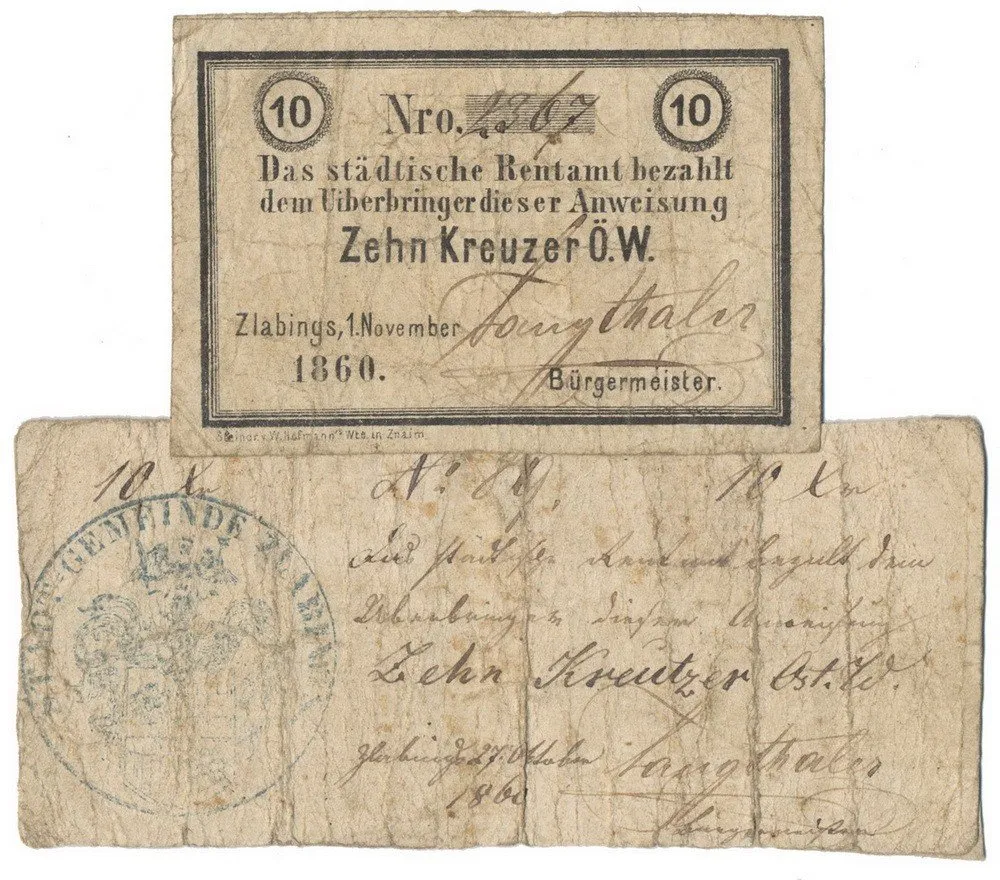 10 Nro. 2367 10
Das städtische Rentamt bezahlt
dem Uiberbringer dieser Anweisung
Zehn Kreuzer Ö.W.
Zlabings, 1. November Langthaler
1860. Bürgermeister.
Wte. in Znaim
10 Xr No 89. 10 Xr
STADT-GEMEINDE ZLABINGS
Das städtische Rentamt bezalt dem
Überbringer dieser Anweisung
Zehn Kreutzer Öst. W.
Zlabings 27. Oktober Langthaler
1860
Bürgermeister